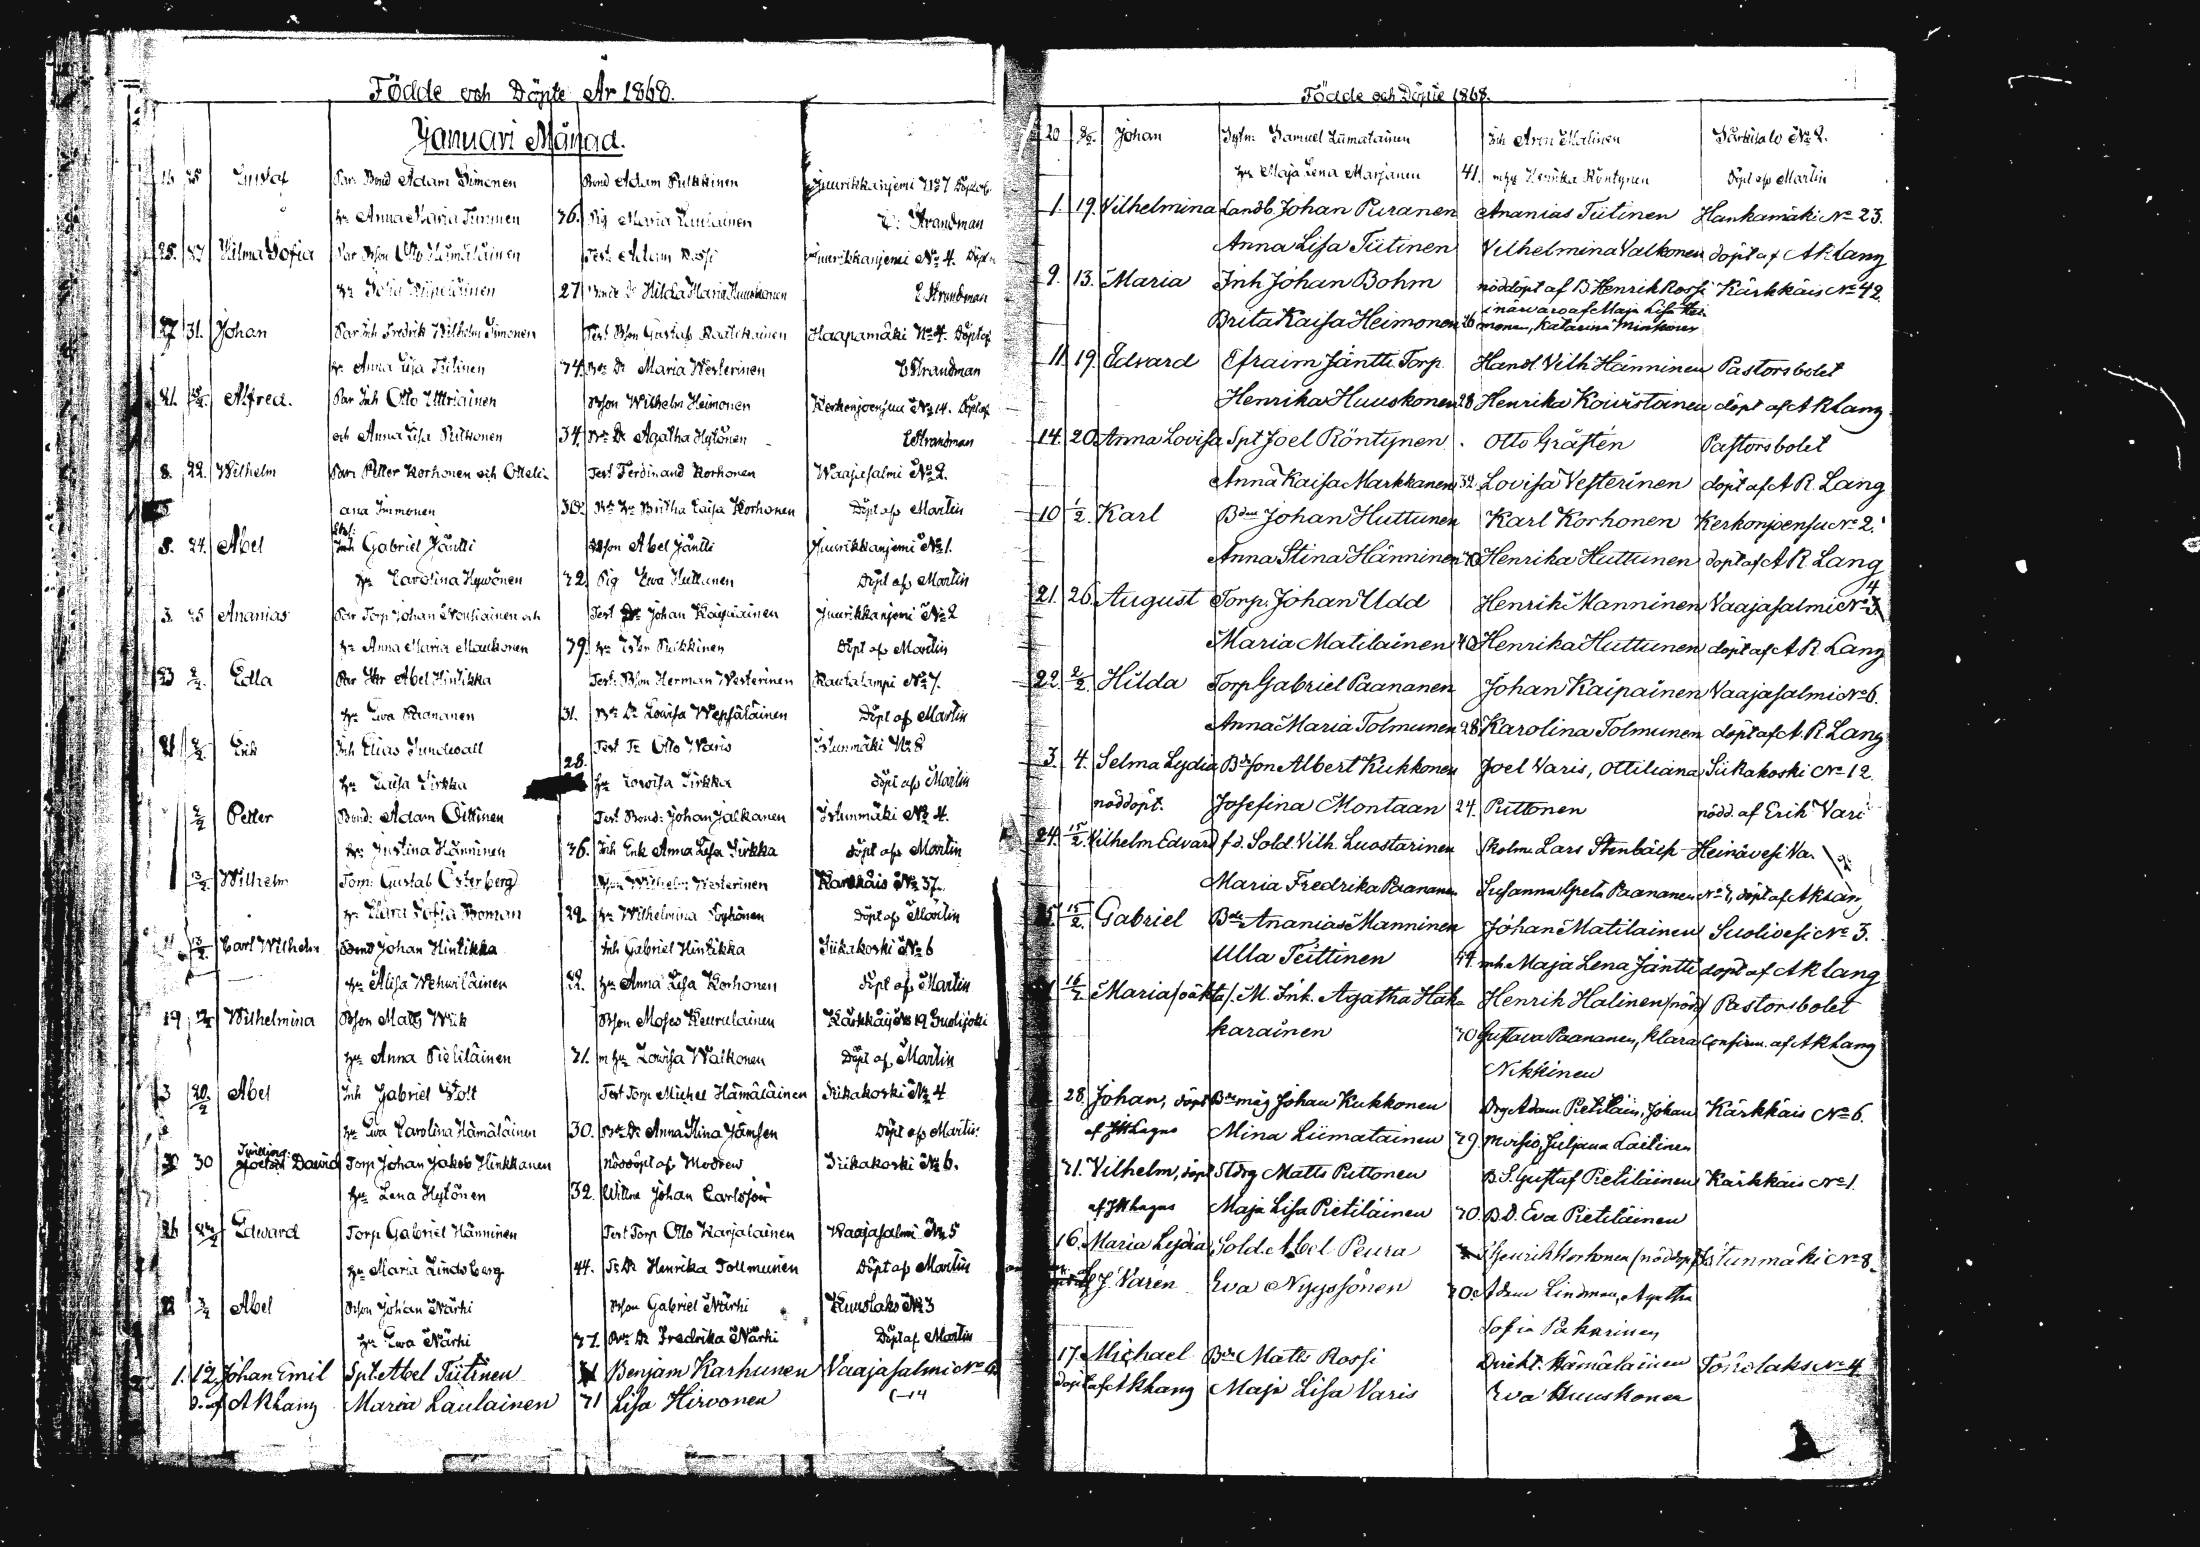 Födde och Döpte År 1868.
Januari Månad.
25 Gustaf Par. Bond Adam Simonen Bond Adam Pulkkinen Juurikkaniemi No 7 Döpt af
hu Anna Maria Turunen 36. Pig Maria Laulainen C. Strandman
25. 27 Hilma Sofia Par Bson Otto Hämäläinen Test. Adam Rossi Juurikkaniemi No 4. Döpt af
27 Hilda Maria Huuskonen C Strandman
27 31. Johan Par Inh Fredrik Wilhelm Simonen Test Bson Gustaf Rautiainen Haapamäki No 4. Döpt af
hu Anna Lisa Tiitinen 34. Maria Westerinen C Strandman
21. Alfred. Par Inh Otto Uttriainen Bson Wilhelm Heimonen Kerkonjoensuu No 14. Döpt af
och Anna Lisa Putkonen 34. Agatha Hytönen C Strandman
8. 22. Wilhelm Par Petter Korhonen och Otteli- Test Ferdinand Korhonen Waajasalmi No 2.
ana Immonen 30. Britha Caisa Korhonen Döpt af Martin
8. 24. Abel Inh Gabriel Jäntti Bson Abel Jäntti Juurikkaniemi No 1.
hu Carolina Hyvönen 32. Pig Ewa Huttunen Döpt af Martin
3. 25 Ananias Par Torp Johan Nousiainen och Test Johan Kaipiainen Juurikkaniemi No 2
hu Anna Maria Maukonen 39. hu Ester Pulkkinen Döpt af Martin
23 2/2. Edla Par Abel Hintikka Test. Bson Herman Westerinen Rautalampi No 7.
hu Ewa Paananen 31. Lowisa Wepsäläinen Döpt af Martin
21 2/2 Erik Inh Elias Sundwall Test Otto Waris Istunmäki No 8
hu Caisa Sirkka 28. hu Lowisa Sirkka döpt af Martin
2/2 Petter Bond. Adam Oittinen Test Bond: Johan Jalkanen Istunmäki No 4.
hu Justina Hänninen 36. Inh Enk Anna Lisa Sirkka döpt af Martin
13/2 Wilhelm Torp. Gustab Österberg Bson Wilhelm Westerinen Karkkäis No 37.
hu Clara Sofia Boman 29. hu Wilhelmina Döpt af Martin
11 13/2 Carl Wilhelm Bond Johan Hintikka Inh Gabriel Hintikka Siikakoski No 6
hu Alisa Wehwiläinen 22. hu Anna Lisa Korhonen döpt af Martin
19 Wilhelmina Bson Matts Wiik Bson Moses Keurulainen Kärkkäis No 19
hu Anna Pieliläinen 31. m hu Lowisa Walkonen Döpt af Martin
3 20/2 Abel Inh Gabriel Test Torp Michel Hämäläinen Siikakoski No 4
hu Ewa Carolina Hämäläinen 30. Anna Stina Jämsen Döpt af Martin
30 30 David Torp Johan Jakob Hinkkanen Nöddöpt af Modren Siikakoski No 6.
hu Lena Hytönen 32. Wittne Johan Carlsson
26 Edward Torp Gabriel Hänninen Test Torp Otto Karjalainen Waajasalmi No 5
hu Maria Lindsberg 44. Henrika Tollmunen Döpt af Martin
Abel Bson Johan Närhi Bson Gabriel Närhi Kuuslaks No 3
hu Ewa Närhi 37. Fredrika Närhi Döpt af Martin
1. 12. Johan Emil Spt. Abel Tiitinen Benjam Karhunen Vaajasalmi No
D. af AR Lang Maria Laulainen 31 Lisa Hirvonen
Födde och Döpte 1868.
20 Johan Samuel Liimatainen Inh Aron Halinen Särkisalo No 2.
hu Maja Lena Marjanen 41. m hu Henrika Röntynen Döpt af Martin
1. 19. Vilhelmina Landb. Johan Puranen Ananias Tiitinen Hankamäki No 23.
Anna Lisa Tiitinen Vilhelmina Valkonen döpt af AR Lang
9. 13. Maria Inh Johan Bohm nöddöpt af B Henrik Rossi Kärkkäis No 42.
Brita Kaisa Heimonen 26 i närvaro af Maja Lisa Hei-
monen, Katarina Minkkonen
11 19. Edvard Efraim Jäntti Torp. Hand. Vilh Hänninen Pastorsbolet
Henrika Huuskonen 28 Henrika Koivistoinen döpt af AR Lang
14. 20. Anna Lovisa Spt Joel Röntynen. Otto Grästen Pastorsbolet
Anna Kaisa Markkanen 32. Lovisa Vesterinen döpt af A R. Lang
10 1/2. Karl Bden Johan Huttunen Karl Korhonen Kerkonjoensu No 2.
Anna Stina Hänninen Henrika Huttunen döpt af A R. Lang
21. 26. August Torp. Johan Udd Henrik Manninen Vaajasalmi No 4
Maria Matilainen 40 Henrika Huttunen döpt af A R. Lang
22. 2/2. Hilda Torp Gabriel Paananen Johan Kaipainen Vaajasalmi No 6.
Anna Maria Tolmunen 28 Karolina Tolmunen döpt af A. R. Lang
3. 4. Selma Lydia Bdeson Albert Kukkonen Joel Varis, Ottiliana Siikakoski No 12.
nöddöpt. Josefina Montaan 24. Puttonen nödd. af Erik Vari
24. 15/2. Vilhelm Edvard f d. Sold. Vilh. Luostarinen Skolm. Lars Stenbäck Heinävesi Va.
Maria Fredrika Paananen Susanna Greta Paananen No 7, döpt af AR Lang
15/2. Gabriel Bde Ananias Manninen Johan Matilainen Suolivesi No 3.
Ulla Teittinen 44 mh. Maja Lena Jäntti döpt af AR Lang
16/2 Maria /oäkta/. M. Ink. Agatha Haka- Henrik Halinen /nödd/ Pastorsbolet
karainen 30 Gustava Paananen, Klara Confirm. af AR Lang
Nikkinen
28. Johan, döpt Bdemåg Johan Kukkonen Drg Adam Pietiläin, Johan Kärkkäis No 6.
af JH Lagus Mina Liimatainen 29. Juljana Laitinen
31. Vilhelm, döpt Stdrg Matts Puttonen B. S. Gustaf Pietiläinen Kärkkäis No 1.
af JH Lagus Maja Lisa Pietiläinen 30. B. D. Eva Pietiläinen
16. Maria Lydia Sold. Abel Peura Henrik Korhonen (nöddöpt) Istunmäki No 8.
J. Varén Eva Nyyssönen 30. Adam Lindman, Agatha
Sofia Pakarinen
17. Michael Bde Matts Rossi Direkt. Hämäläinen No 4
döpt af AR Lang Maja Lisa Varis Eva Huuskonen